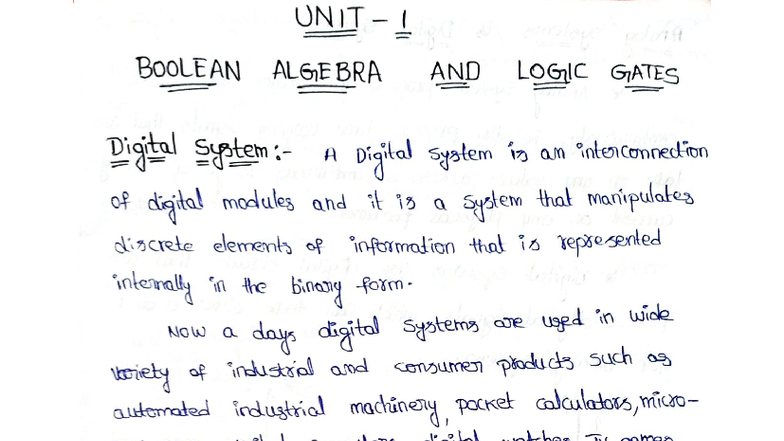 UNIT - 1
BOOLEAN ALGEBRA AND LOGIC GATES
Digital System :- A Digital system is an interconnection
of digital modules and it is a system that manipulates
discrete elements of information that is represented
internally in the binary form.
Now a days digital systems are used in wide
variety of industrial and consumer products such as
automated industrial machinery, pocket calculators, micro-
digital watches, TV games